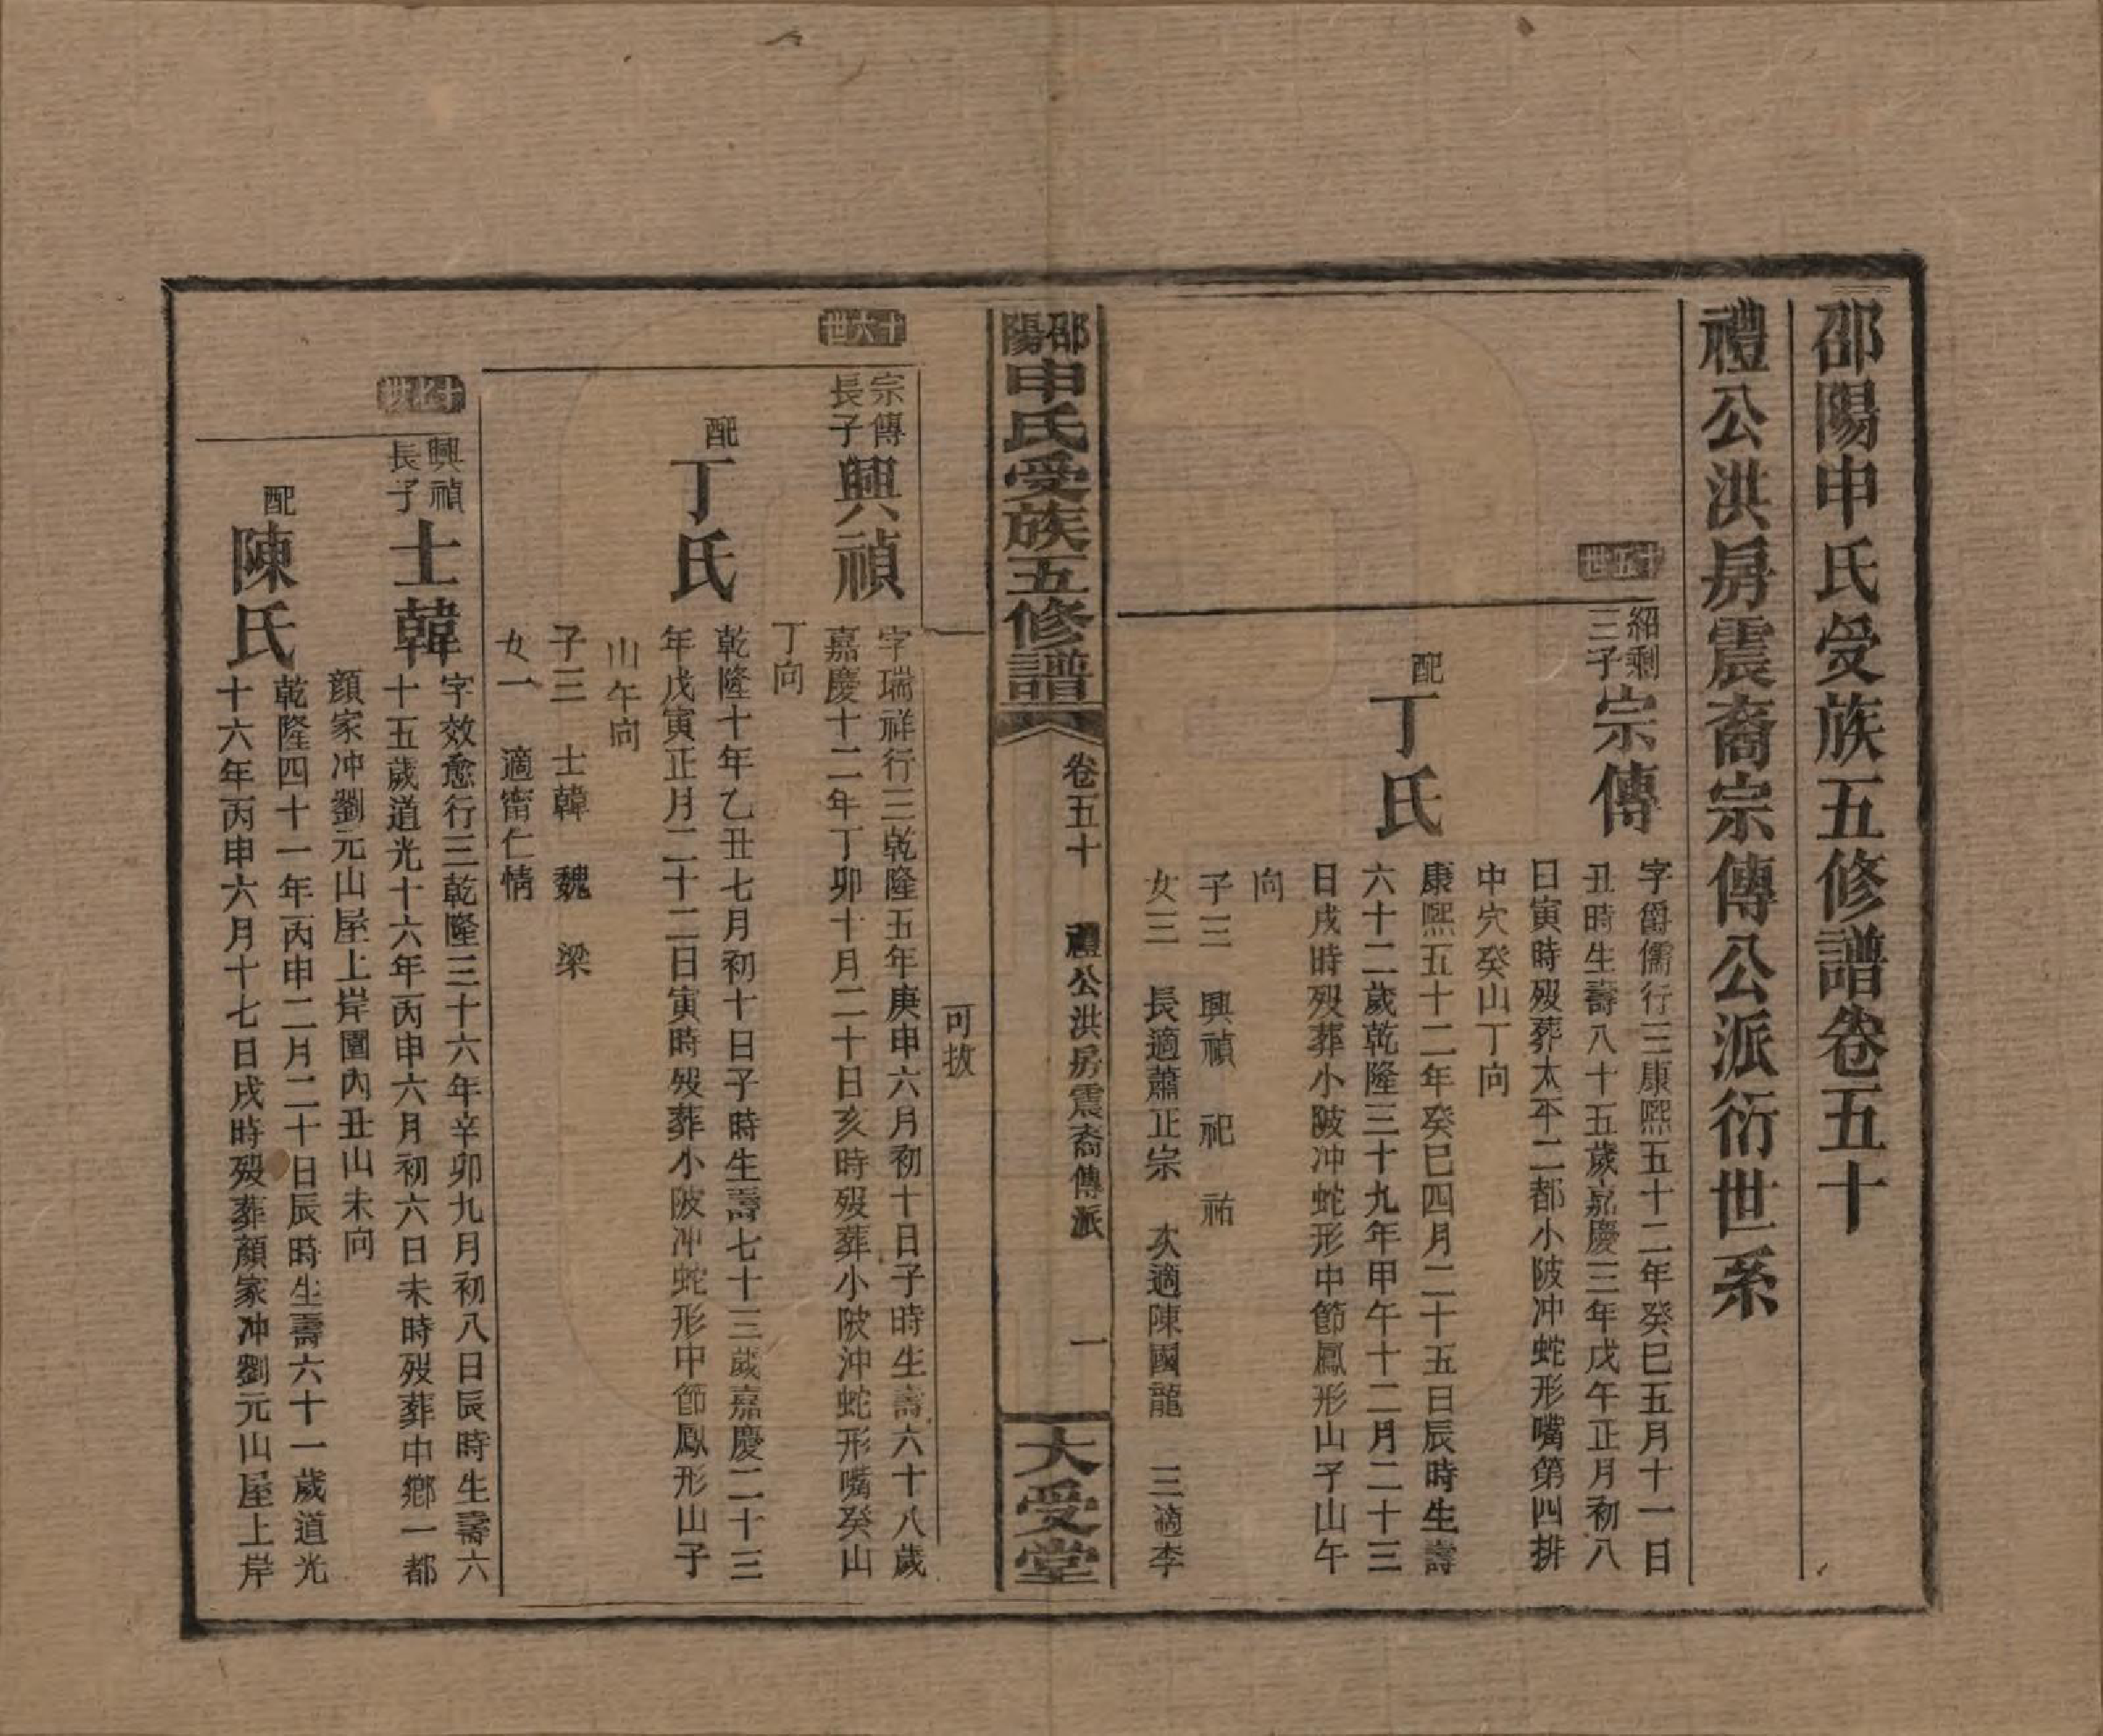 邵陽申氏受族五修譜卷五十
禮公洪房震裔宗傳公派衍世系
十五世
紹剩三子
宗傳
字爵儒行三康熙五十二年癸巳五月十一日
丑時生壽八十五歲嘉慶三年戊午正月初八
日寅時歿葬太平二都小陂冲蛇形嘴第四排
中穴癸山丁向
配
丁氏
康熙五十二年癸巳四月二十五日辰時生壽
六十二歲乾隆三十九年甲午十二月二十三
日戌時歿葬小陂冲蛇形中節鳳形山子山午
向
子三 興禎 祀 祐
女三 長適蕭正宗 次適陳國龍 三適李
邵陽申氏受族五修譜
卷五十 禮公洪房震裔傳派 一
大受堂
可拔
十六世
宗傳長子
興禎
字瑞祥行三乾隆五年庚申六月初十日子時生壽六十八歲
嘉慶十二年丁卯十月二十日亥時歿葬小陂沖蛇形嘴癸山
丁向
配
丁氏
乾隆十年乙丑七月初十日子時生壽七十三歲嘉慶二十三
年戊寅正月二十二日寅時歿葬小陂冲蛇形中節鳳形山子
山午向
子三 士韓 魏 梁
女一 適甯仁情
十七世
興禎長子
士韓
字效愈行三乾隆三十六年辛卯九月初八日辰時生壽六
十五歲道光十六年丙申六月初六日未時歿葬中鄉一都
顔家冲劉元山屋上岸圍內丑山未向
配
陳氏
乾隆四十一年丙申二月二十日辰時生壽六十一歲道光
十六年丙申六月十七日戌時歿葬顔家冲劉元山屋上岸